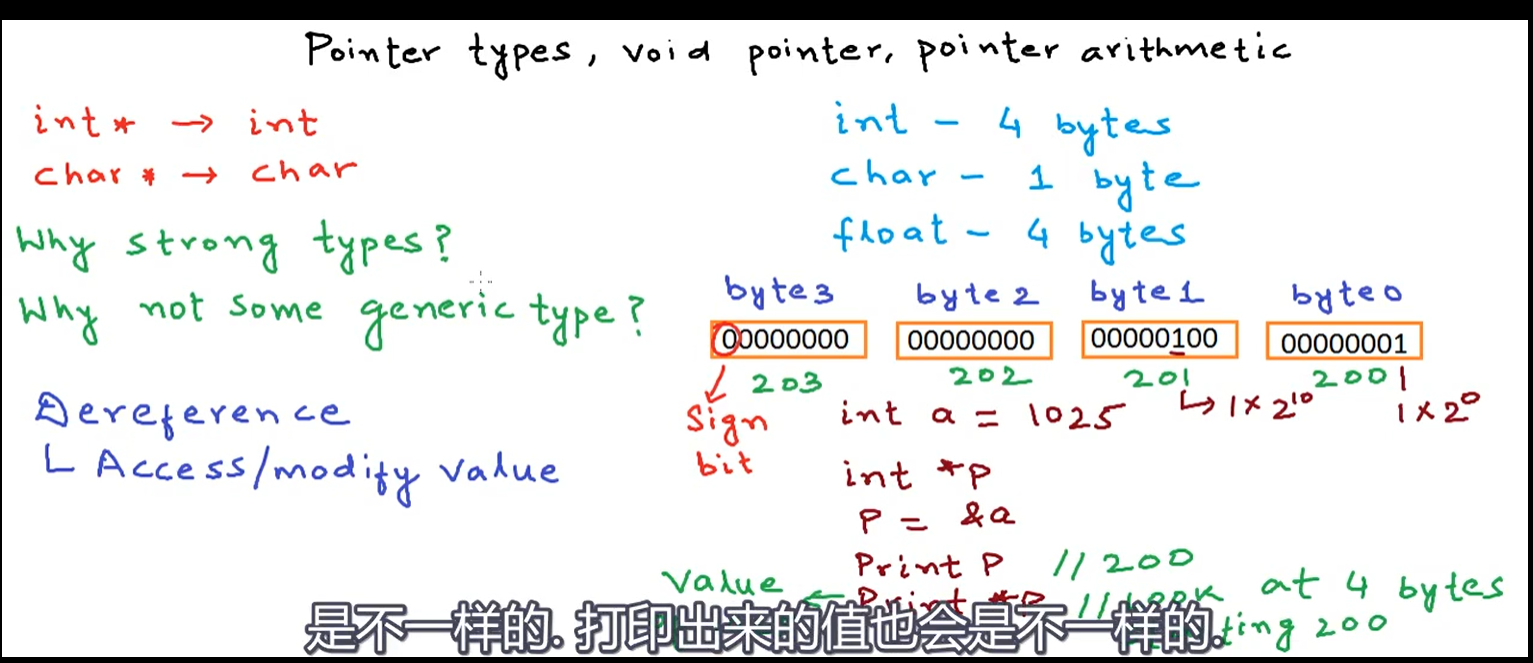 Pointer types, void pointer, pointer arithmetic
int * → int
char * → char
Why strong types?
Why not some generic type?
Dereference
└ Access/modify value
int - 4 bytes
char - 1 byte
float - 4 bytes
byte3 byte2 byte1 byte0
00000000 00000000 00000100 00000001
203 202 201 200
Sign bit
int a = 1025 ↳ 1×2¹⁰ 1×2⁰
int *p
P = &a
Print P // 200
Value ← Print *P // Look at 4 bytes
ting 200
是不一样的.打印出来的值也会是不一样的.